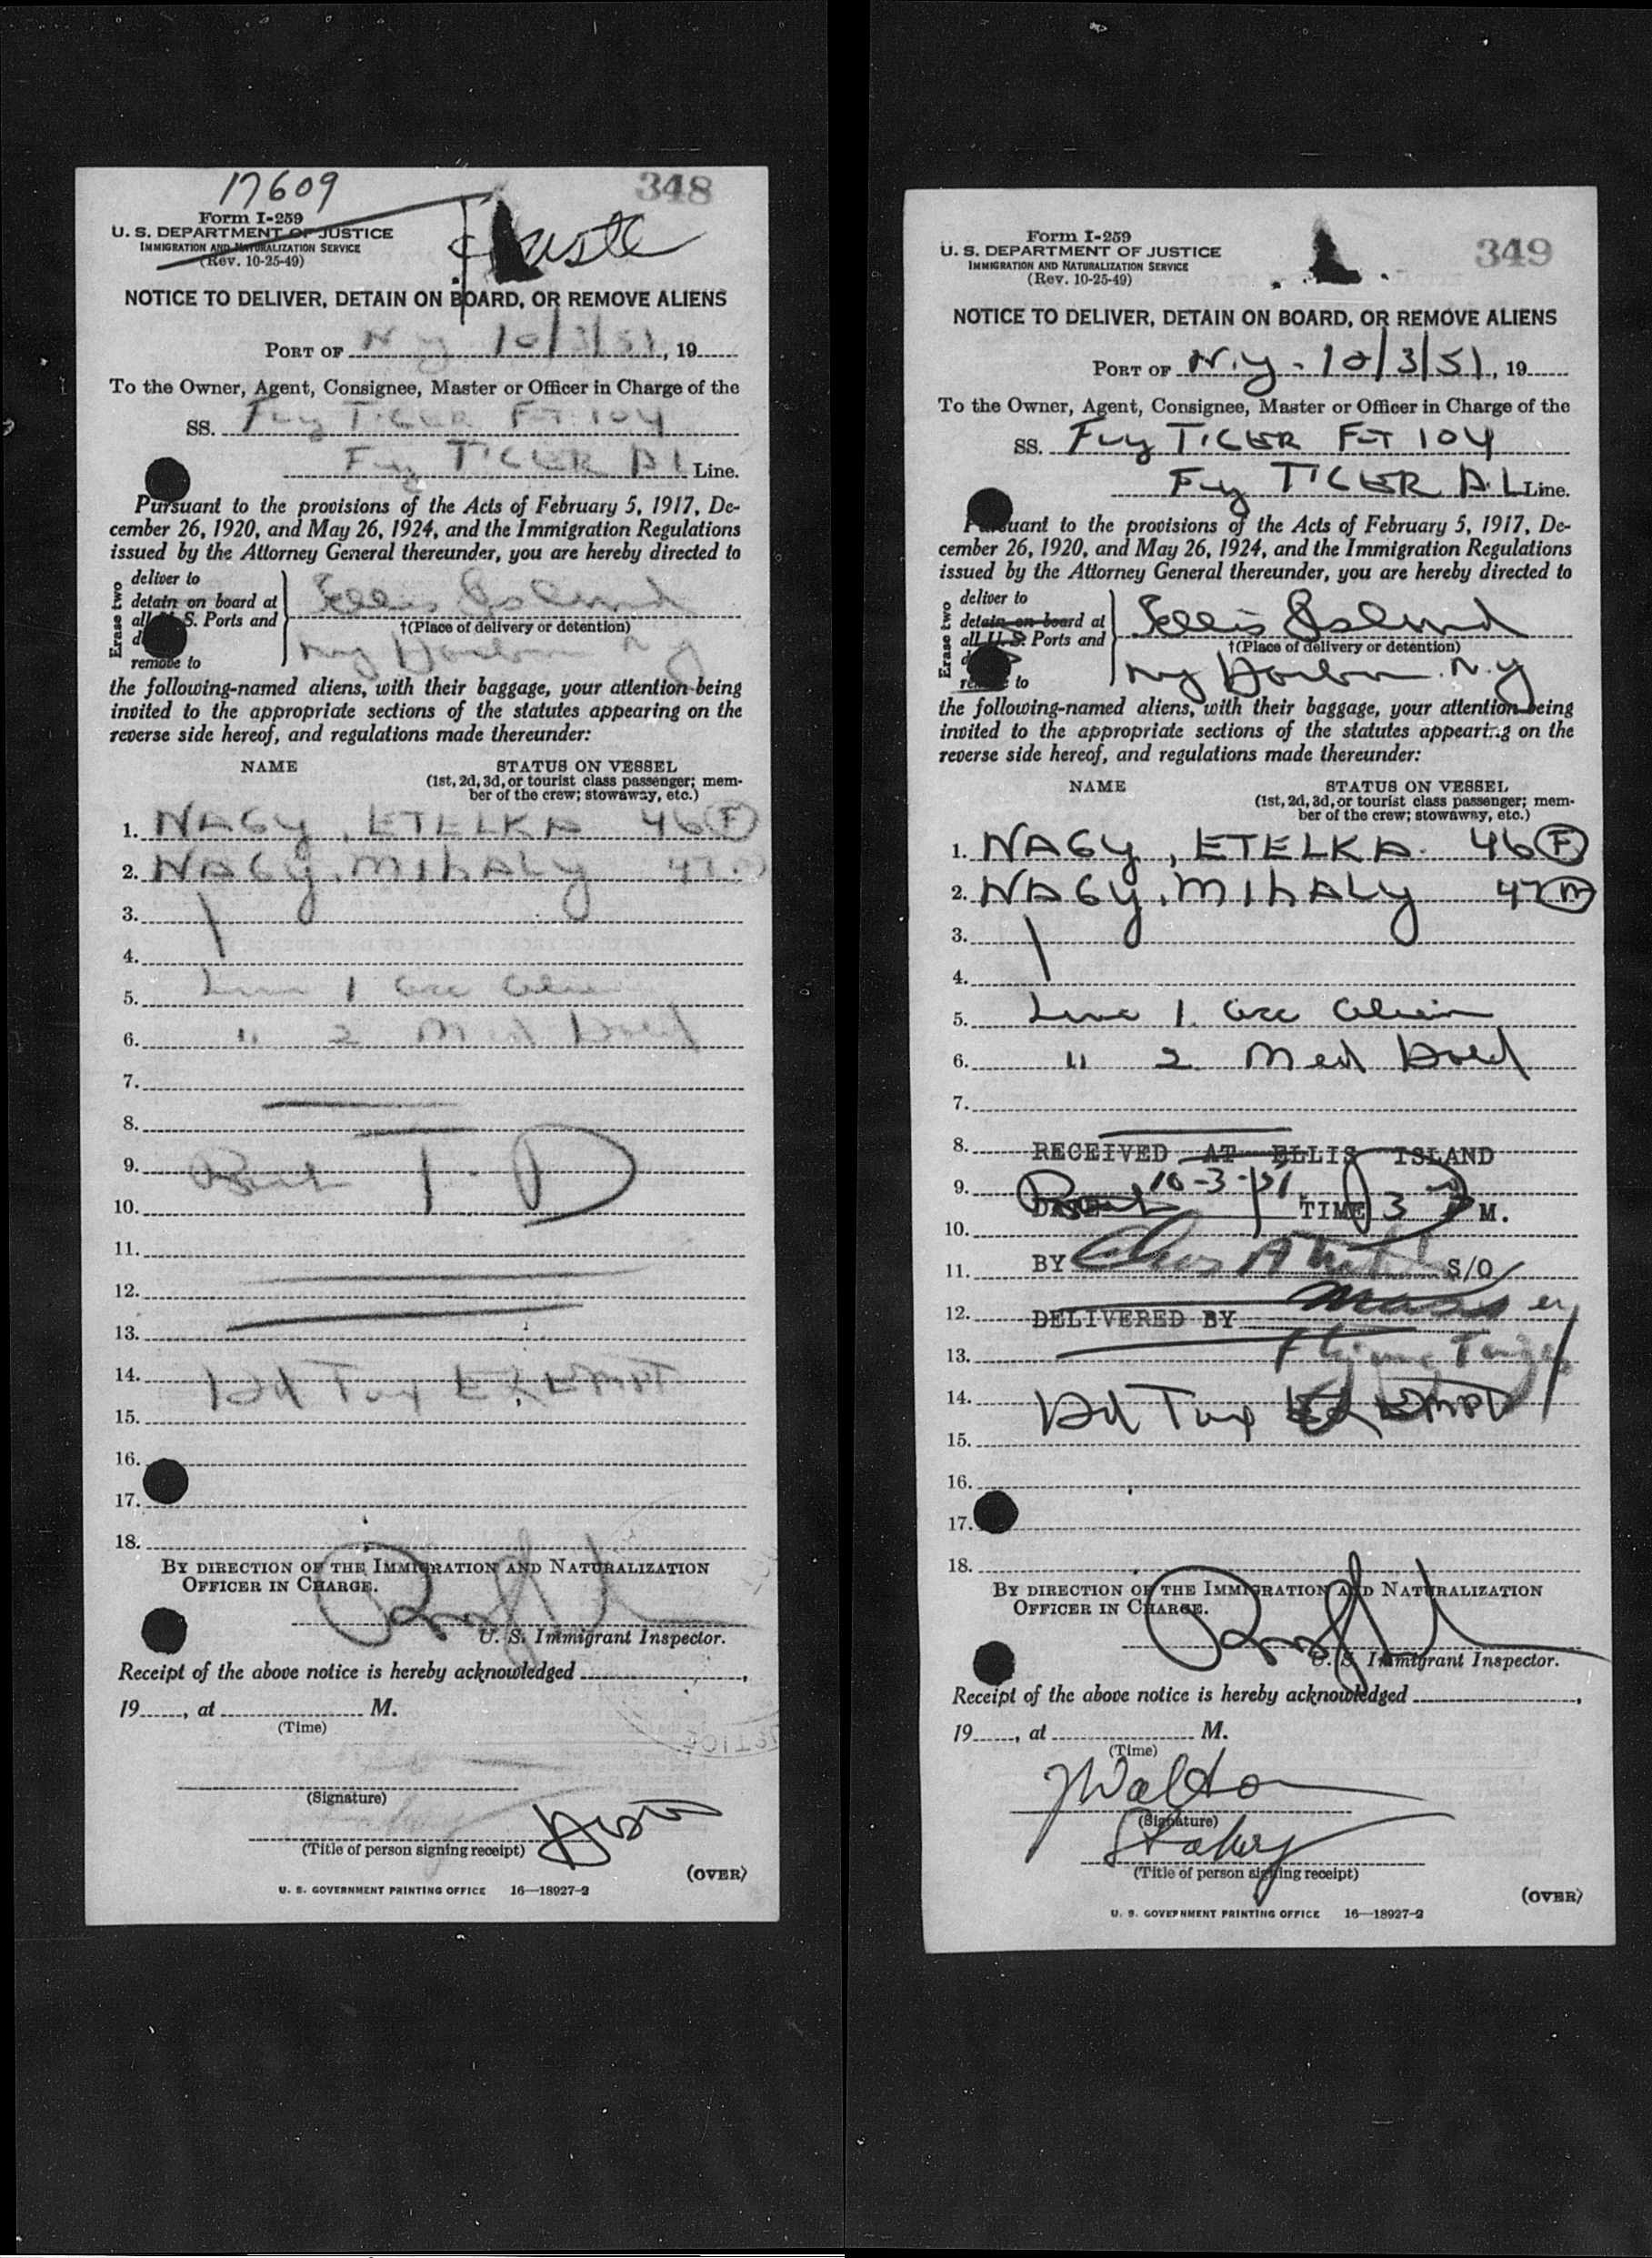 17609
348
Form I-259
U. S. DEPARTMENT OF JUSTICE
IMMIGRATION AND NATURALIZATION SERVICE
(Rev. 10-25-49)
NOTICE TO DELIVER, DETAIN ON BOARD, OR REMOVE ALIENS
PORT OF N Y 10/3/51, 19
To the Owner, Agent, Consignee, Master or Officer in Charge of the
SS. Fly TIGER FT 104
Fly TIGER A L Line.
Pursuant to the provisions of the Acts of February 5, 1917, De-
cember 26, 1920, and May 26, 1924, and the Immigration Regulations
issued by the Attorney General thereunder, you are hereby directed to
Erase two
deliver to
detain on board at
all S. Ports and
remove to
Ellis Island
†(Place of delivery or detention)
Ny Harbor N y
the following-named aliens, with their baggage, your attention being
invited to the appropriate sections of the statutes appearing on the
reverse side hereof, and regulations made thereunder:
NAME
STATUS ON VESSEL
(1st, 2d, 3d, or tourist class passenger; mem-
ber of the crew; stowaway, etc.)
1. NAGy, ETELKA 46 F
2. NAGy, MIhALy 47
3.
4.
5. Line 1 acc alien
6. " 2 Med Hold
7.
8.
9. T. D
10.
11.
12.
13.
14. Hd Tax EXEMPT
15.
16.
17.
18.
BY DIRECTION OF THE IMMIGRATION AND NATURALIZATION
OFFICER IN CHARGE.
U. S. Immigrant Inspector.
Receipt of the above notice is hereby acknowledged
19, at M.
(Time)
(Signature)
(Title of person signing receipt)
(OVER)
U. S. GOVERNMENT PRINTING OFFICE 16—18927-2
349
Form I-259
U. S. DEPARTMENT OF JUSTICE
IMMIGRATION AND NATURALIZATION SERVICE
(Rev. 10-25-49)
NOTICE TO DELIVER, DETAIN ON BOARD, OR REMOVE ALIENS
PORT OF N.y. 10/3/51, 19
To the Owner, Agent, Consignee, Master or Officer in Charge of the
SS. Fly TIGER FT 104
Fly TIGER A.L Line.
Pursuant to the provisions of the Acts of February 5, 1917, De-
cember 26, 1920, and May 26, 1924, and the Immigration Regulations
issued by the Attorney General thereunder, you are hereby directed to
Erase two
deliver to
detain on board at
all U.S. Ports and
to
Ellis Island
†(Place of delivery or detention)
Ny Harbor N.y
the following-named aliens, with their baggage, your attention being
invited to the appropriate sections of the statutes appearing on the
reverse side hereof, and regulations made thereunder:
NAME
STATUS ON VESSEL
(1st, 2d, 3d, or tourist class passenger; mem-
ber of the crew; stowaway, etc.)
1. NAGy, ETELKA 46 F
2. NAGy, MIhALy 47 M
3.
4.
5. Line 1 acc alien
6. " 2 Med Hold
7.
8. RECEIVED AT ELLIS ISLAND
9. 10-3-51
DATE TIME 3 P M.
10.
11. BY S/O
12. DELIVERED BY
13. Flying Tiger
14. Hd Tax EXEMPT
15.
16.
17.
18.
BY DIRECTION OF THE IMMIGRATION AND NATURALIZATION
OFFICER IN CHARGE.
U. S. Immigrant Inspector.
Receipt of the above notice is hereby acknowledged
19, at M.
(Time)
J Walton
(Signature)
(Title of person signing receipt)
(OVER)
U. S. GOVERNMENT PRINTING OFFICE 16—18927-2